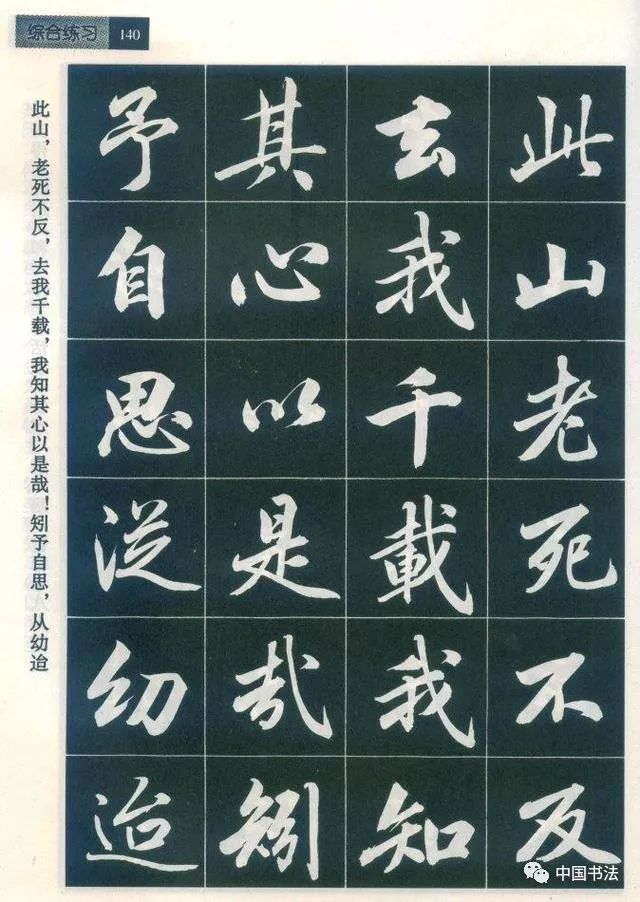 综合练习 140
此山老死不反
去我千載我知
其心以是哉矧
予自思從幼迨
此山，老死不反，去我千载，我知其心以是哉！矧予自思，从幼迨
中国书法